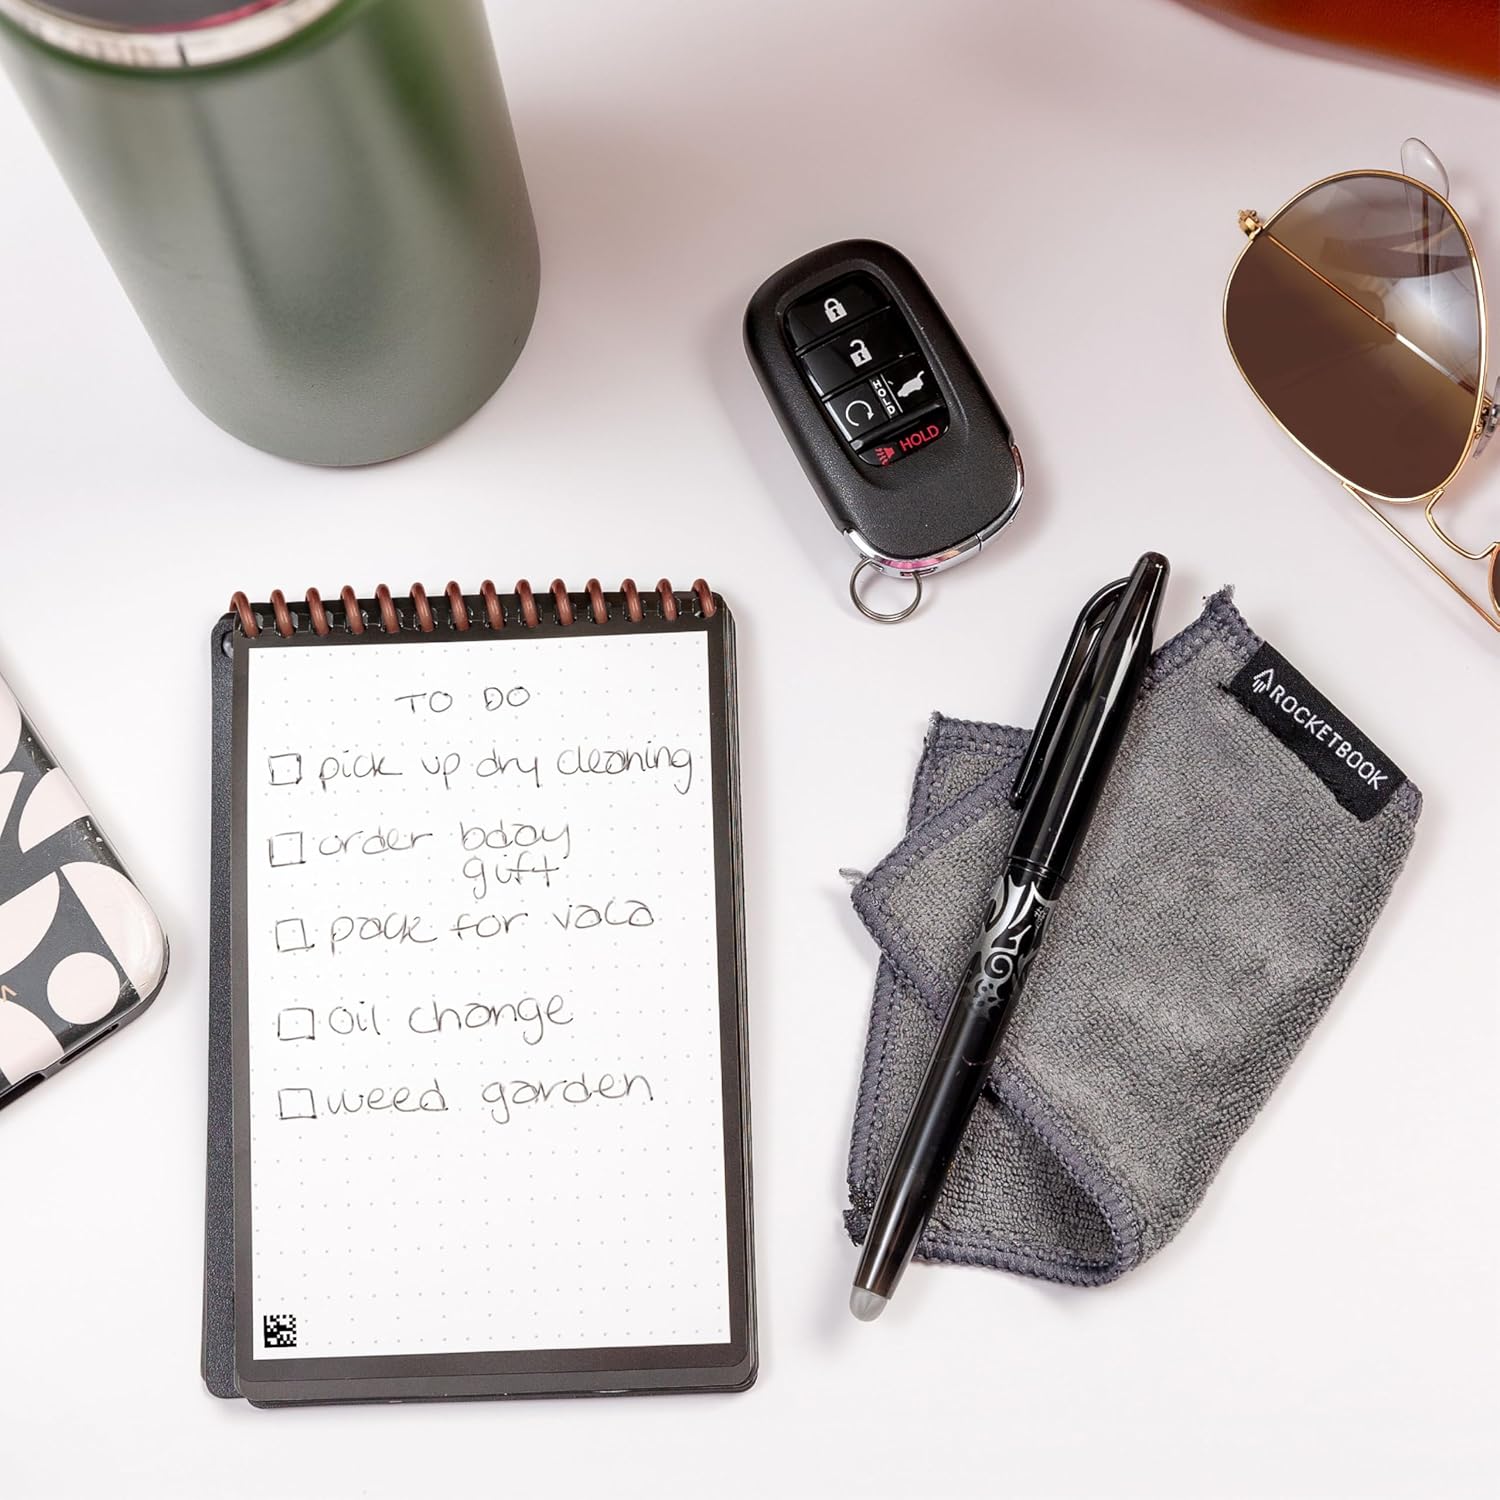 HOLD
HOLD
ROCKETBOOK
TO DO
pick up dry cleaning
order bday
gift
pack for vaca
oil change
weed garden